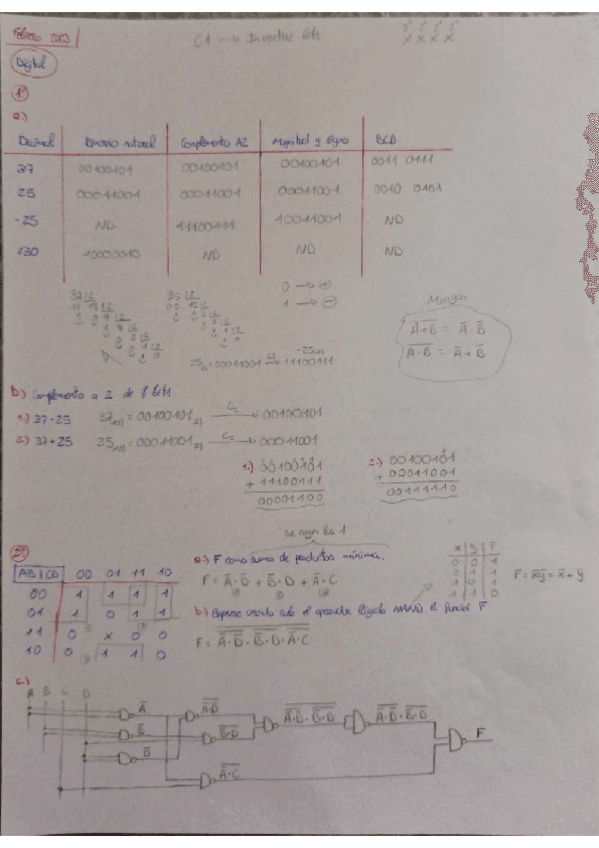 Febrero 2023
C1 → Invertir bits
Digital
1º
a)
Decimal Binario natural Complemento A2 Magnitud y signo BCD
37 00100101 00100101 00100101 0011 0111
25 00011001 00011001 00011001 0010 0101
-25 ND 11100111 10011001 ND
130 10000010 ND ND ND
0 → ⊕
1 → ⊖
Morgan
A̅+̅B̅ = A̅ · B̅
A̅·̅B̅ = A̅ + B̅
25₁₀ = 00011001 → 11100111
b) Complemento a 2 de 8 bits
1) 37-25 37₁₀₎ = 00100101₂₎ C₂→ 00100101
2) 37+25 25₁₀₎ = 00011001₂₎ C₂→ 00011001
1) 00100101
+ 11100111
00001100
2) 00100101
+ 00011001
00111110
se cogen los 1
2º
AB|CD 00 01 11 10
00 1 1 1 1
01 1 0 1 1
11 0 x 0 0
10 0 1 1 0
a) F como suma de productos mínima.
F = A̅·D̅ + B̅·D + A̅·C
x y F
0 0 1
0 1 1
1 0 1
1 1 0
F = x̅y̅ = x̅ + y̅
b) Exprese usando solo el operador lógico NAND la función F
c)
A B C D
F